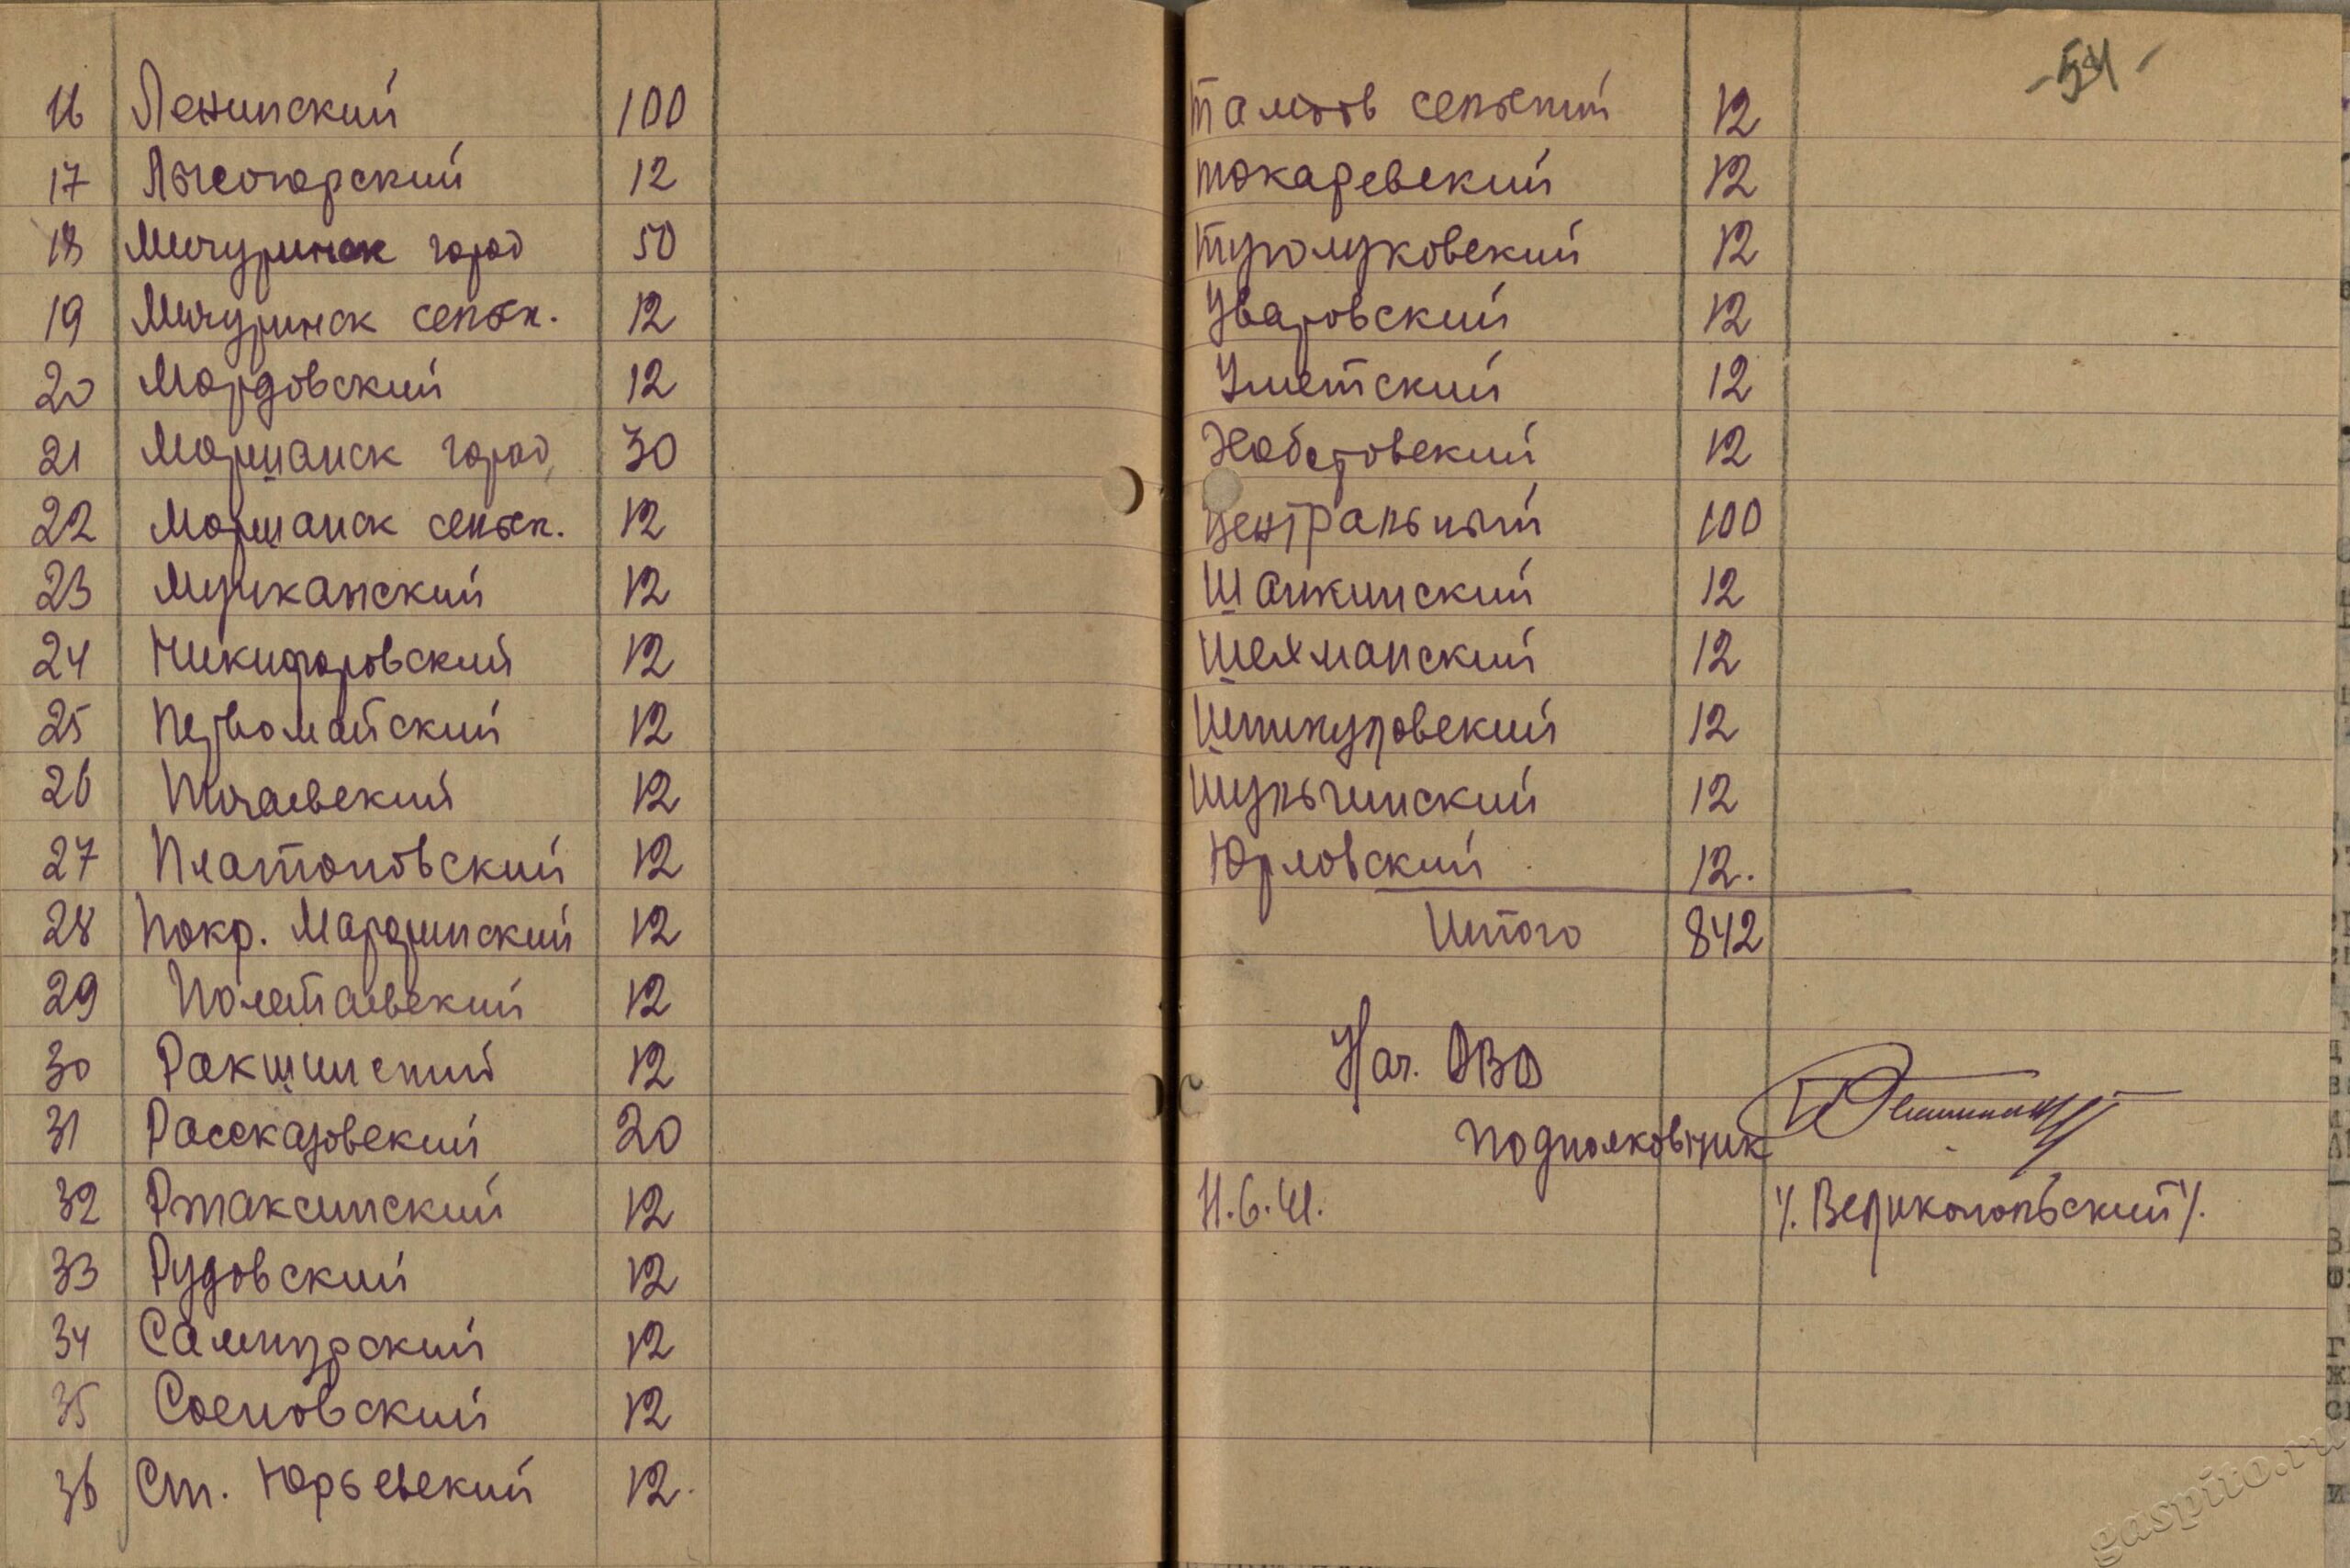 16 Ленинский 100
17 Лысогорский 12
18 Мичуринск город 50
19 Мичуринск сельск. 12
20 Мордовский 12
21 Моршанск город 30
22 Моршанск сельск. 12
23 Мучкапский 12
24 Никифоровский 12
25 Первомайский 12
26 Пичаевский 12
27 Платоновский 12
28 Покр. Марфинский 12
29 Полетаевский 12
30 Ракшинский 12
31 Рассказовский 20
32 Ржаксинский 12
33 Рудовский 12
34 Сампурский 12
35 Сосновский 12
36 Ст. Юрьевский 12.
-54-
Тамбов сельский 12
Токаревский 12
Туголуковский 12
Уваровский 12
Уметский 12
Хоботовский 12
Центральный 100
Шапкинский 12
Шехманский 12
Шпикуловский 12
Шульгинский 12
Юрловский 12.
Итого 842
Нач. ОВО
подполковник
11.6.41.
/. Великопольский /.
gaspito.ru